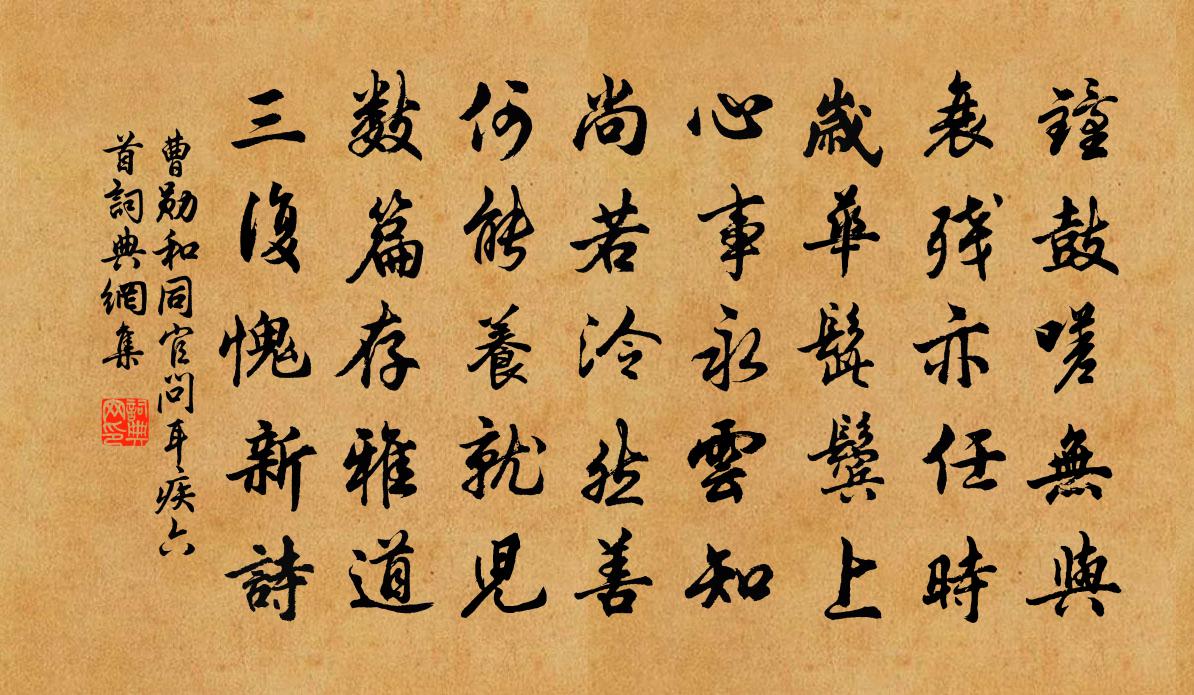 鐘鼓嗟無與
衰残亦任時
歲華髭鬢上
心事永雲知
尚若泠然善
何能養就児
數篇存雅道
三復愧新詩
曹勛和同官問耳疾六
首詞典網集
詞典网印